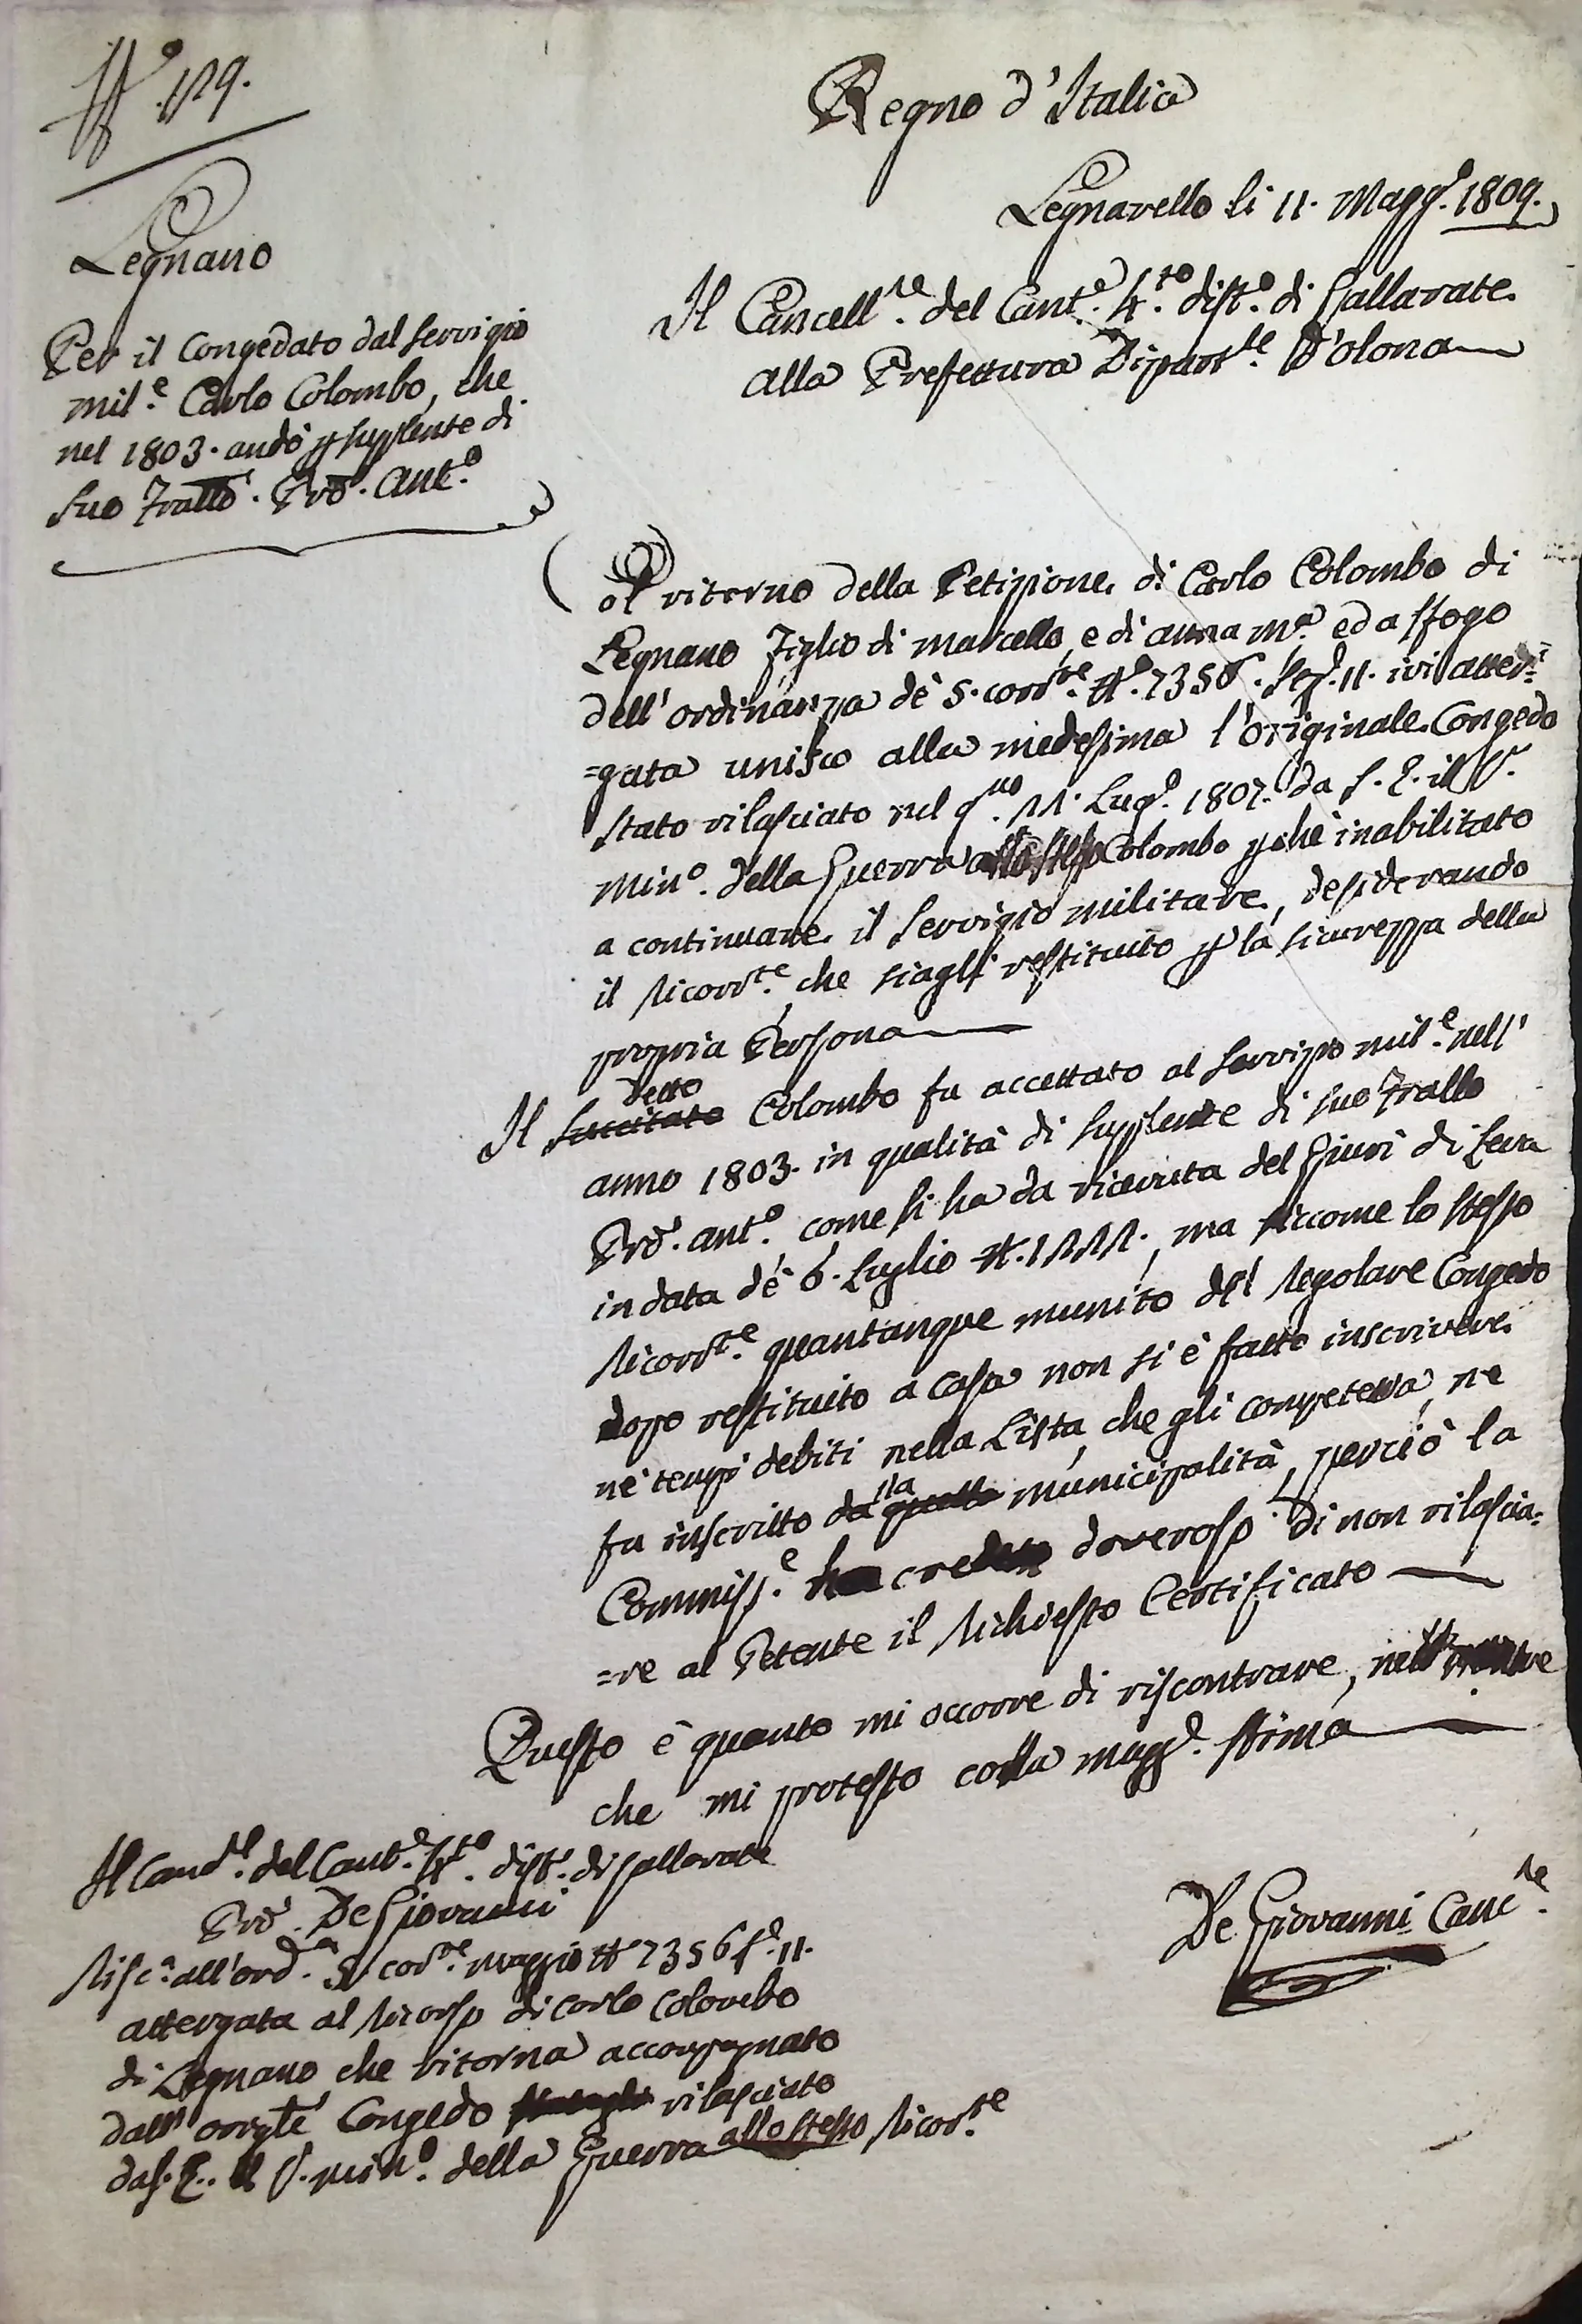 N.° 129.
Legnano
Per il Congedato dal Servigio
mil.e Carlo Colombo, che
nel 1803. andò p supplente di
suo Frallo. Gio. Ant.o
Regno d'Italia
Legnarello li 11. Magg.o 1809.
Il Cancell.re del Cant.e 4.to dist.o di Gallarate
alla Prefettura Dipart.le d'Olona
Al ritorno della Petizione di Carlo Colombo di
Legnano Figlio di Marcello, e di Anna M.a ed a sfogo
dell'ordinanza de' 5. corr.te N.° 7356. Sez. 11. ivi atter=
=gata unisco alla medesima l'originale Congedo
stato rilasciato nel g.no 22. Lug.o 1807. da S. E. il S.
Min.o della Guerra allo stesso Colombo pchè inabilitato
a continuare il Servigio militare, desiderando
il Ricorr.te, che siagli restituito p la sicurezza della
propria Persona
Il succitato detto Colombo fu accettato al Servigio mil.e nell'
anno 1803. in qualità di supplente di suo Frallo
Gio. Ant.o come si ha da ricevuta del Giurì di Leva
in data de' 6. Luglio N. 1222., ma siccome lo stesso
Ricorr.te quantunque munito del Regolare Congedo
dopo restituito a casa non si è fatto inscrivere
ne' tempi debiti nella Lista, che gli competeva, ne
fu inscritto da quella lla municipalità, perciò la
Commiss.e crede doveroso di non rilascia=
=re al Petente il Richiesto Certificato
Questo è quanto mi occorre di riscontrare, nell'
che mi protesto colla magg.e stima
De Giovanni Canc.re
Il Canc.e del Cant.e 4.to dist. di Gallarate
Gio. De Giovanni
Risc.a all'ord.a 5 cor.te Maggio N 7356 S. 11.
attergata al Ricorso di Carlo Colombo
di Legnano che ritorna accompagnato
dall'origle Congedo rilasciato
da S. E. il S. Min.o della Guerra allo stesso Ricor.te